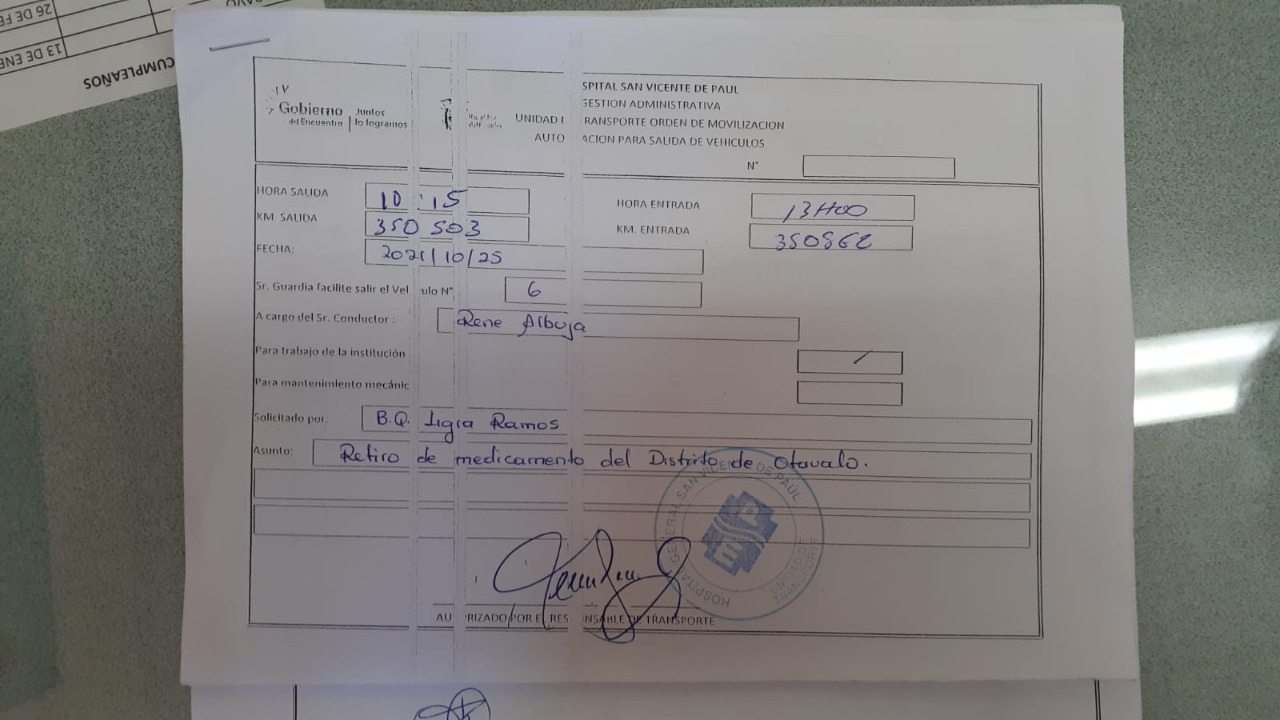 26 DE FE
13 DE ENE
CUMPLEAÑOS
Gobierno Juntos
del Encuentro lo logramos
SPITAL SAN VICENTE DE PAUL
GESTION ADMINISTRATIVA
UNIDAD RANSPORTE ORDEN DE MOVILIZACION
AUTO ACION PARA SALIDA DE VEHICULOS
N°
HORA SALIDA 10:15 HORA ENTRADA 13H00
KM SALIDA 350503 KM. ENTRADA 350562
FECHA: 2021/10/25
Sr. Guardia facilite salir el Vel ulo N° 6
A cargo del Sr. Conductor : Rene Albuja
Para trabajo de la institución /
Para mantenimiento mecánic
Solicitado por: B.Q. Ligia Ramos
Asunto: Retiro de medicamento del Distrito de Otavalo.
HOSPITAL GENERAL SAN VICENTE DE PAUL
UNIDAD DE TRANSPORTE
AU RIZADO POR E RES NSABLE DE TRANSPORTE